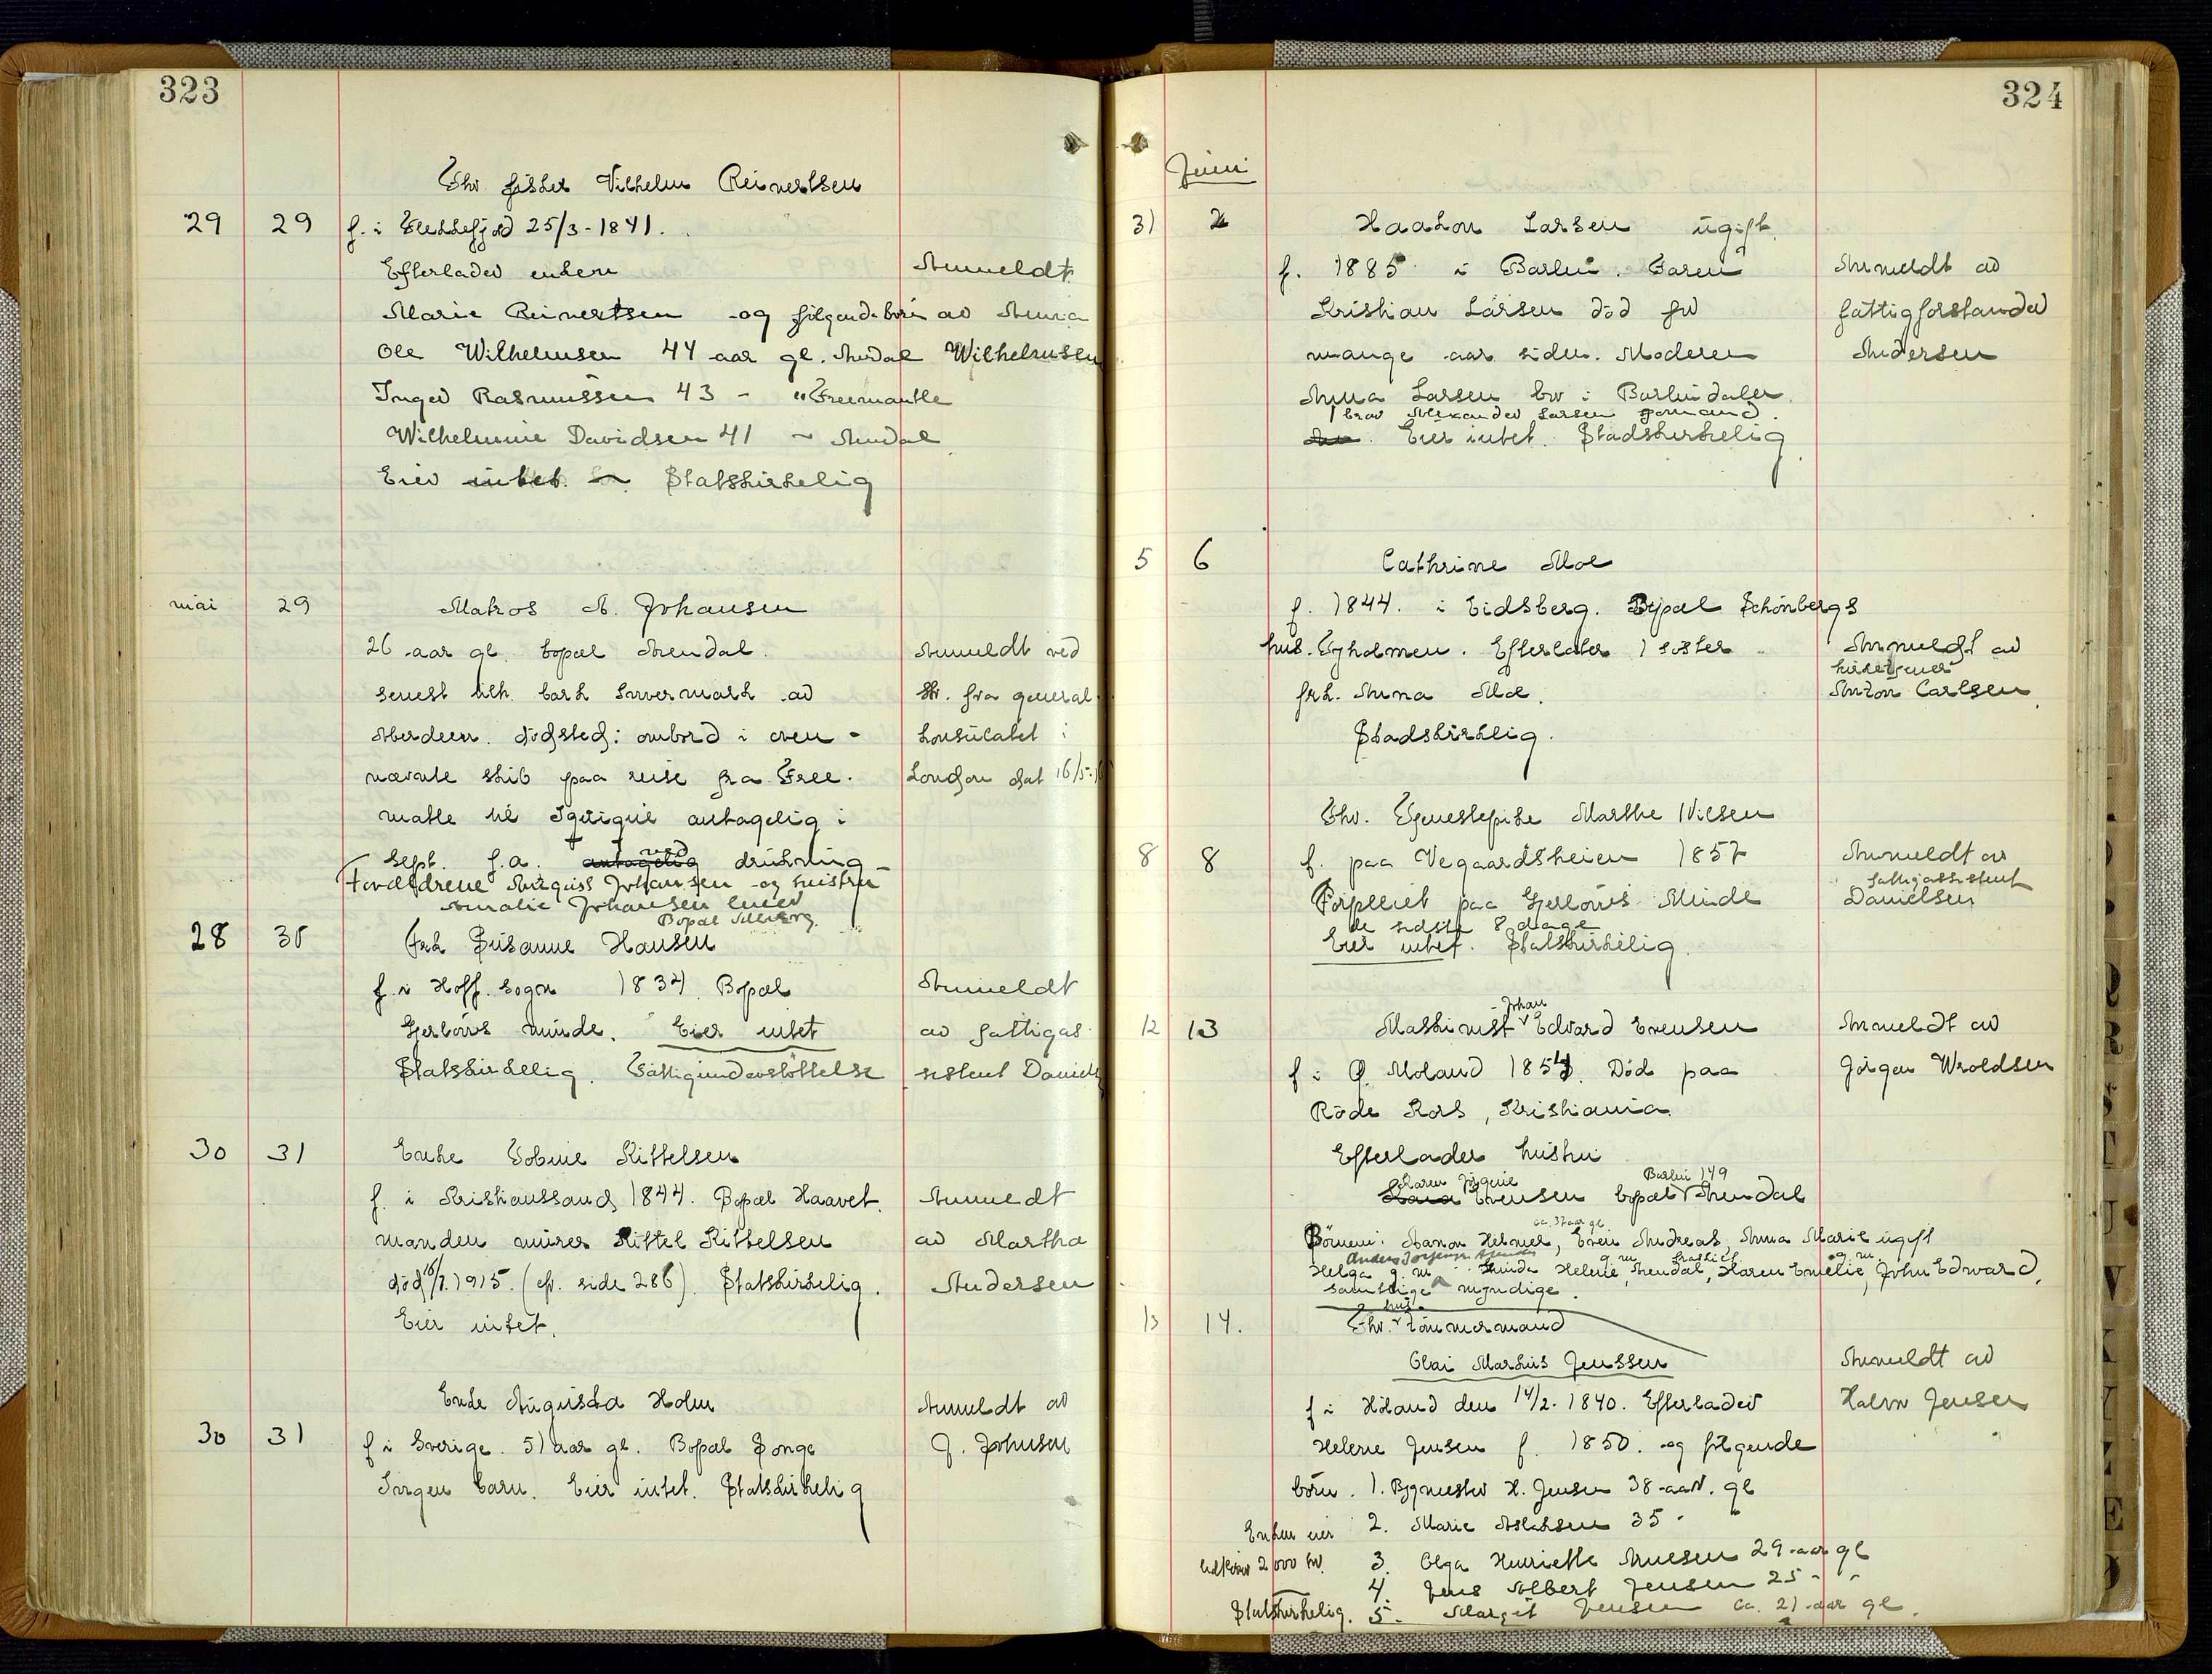 323
Fhv. fisker Vilhelm Reinertsen
29 29 f. i Flekkefjord 25/3-1841.
Efterlader enken Anmeldt
Marie Reinertsen og følgende børn av Anna
Ole Wilhelmsen 44 aar gl. Arendal Wilhelmsen
Inger Rasmussen 43 - " Freemantle
Wilhelmine Davidsen 41 - Arendal
Eier intet. Statskirkelig
mai 29 Matros A. Johansen
26 aar gl. bopæl Arendal. Anmeldt ved
senest tilh. bark Invermark av skr. fra general
Aberdeen. dødsted: ombord i oven- konsulatet i
nævnte skib paa reise fra Free- London dat 16/5-16
matle til Iquique antagelig i
Sept. f.a. antagelig ved drukning
Forældrene August Johansen og hustru
Amalie Johansen lever
Bopæl
28 30 Frk Susanne Hansen
f. i Hoff. sogn 1834 Bopæl Anmeldt
Gjerløws minde. Eier intet av fattigas-
Statskirkelig. Fattigunderstøttelse sistent Daniels
30 31 Enke Tobine Kittelsen
f. i Kristianssand 1844. Bopæl Haavet. Anmeldt
manden murer Kittel Kittelsen av Martha
død 16/7.1915. (cfr. side 286). Statskirkelig. Andersen
Eier intet.
Enke Augusta Holm Anmeldt av
30 31 f i Sverige. 51 aar gl. Bopæl Songe J. Johnsen
Ingen barn. Eier intet. Statskirkelig
324
Juni
31 2 Haakon Larsen ugift
f. 1885 i Barbu. Faren Anmeldt av
Kristian Larsen død for fattigforstander
mange aar siden. Moderen Andersen
Anna Larsen bor i Barbudalen.
1 bror Alexander Larsen formand.
Eier intet. Stadskirkelig
5 6 Cathrine Moe
f. 1844. i Eidsberg. Bopæl Schönbergs
hus. Tyholmen. Efterlater 1 søster Anmeldt av
hjuletjener
frk. Anna Moe. Anton Carlsen.
Stadskirkelig.
Fhv. Tjenestepike Marthe Nilsen
8 8 f. paa Vegaardsheien 1857 Anmeldt av
fattigassistent
Forpleiet paa Gjerløws Minde Danielsen
de sidste 8 dage
Eier intet. Statskirkelig.
Johan
12 13 Maskinist Edvard Evensen Anmeldt av
f i Ø. Moland 1854. Død paa Jørgen Wroldsen
Røde Kors, Kristiania.
Efterlader hustru
Karen Jørgine Barbu 149
Evensen bopæl Arendal
ca. 37 aar gl
Børnene: Aanon Helmer, Even Andreas, Anna Marie ugift
Helga g. m. Helene, Arendal, Karen Emelie, John Edward,
samtlige myndige.
13 14. Fhv. tømmermand
Olai Markus Jenssen Anmeldt av
f i Høland den 14/2. 1840. Efterlader Halvor Jensen
Helene Jensen f. 1850. og følgende
børn. 1. Bygmester H. Jensen 38 aar. gl
Enken eier 2. Marie Aslaksen 35 -
2000 kr. 3. Olga Henriette Knudsen 29 aar gl
4. Jens Albert Jensen 25 - -
Statskirkelig. 5. Margit Jensen ca. 21 aar gl.